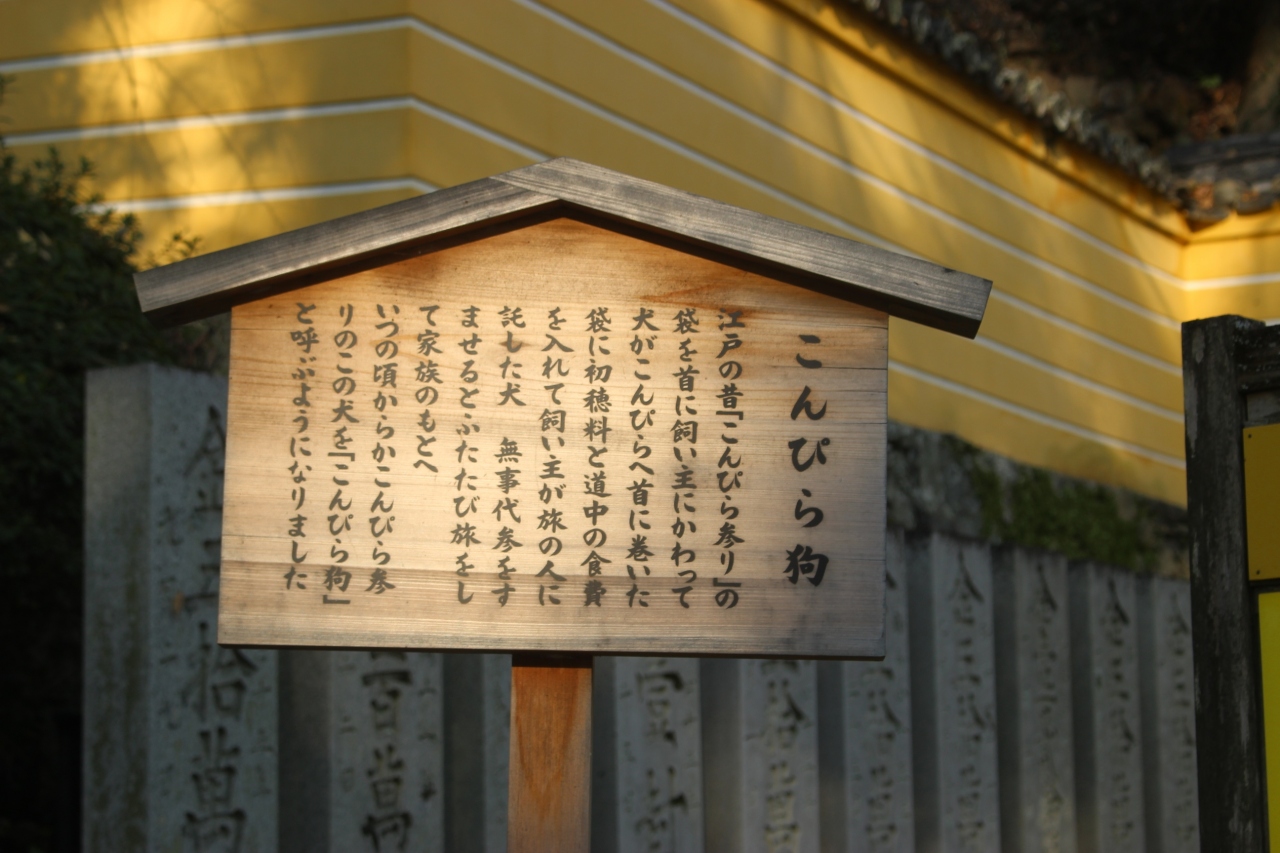 こんぴら狗
江戸の昔「こんぴら参り」の
袋を首に飼い主にかわって
犬がこんぴらへ首に巻いた
袋に初穂料と道中の食費
を入れて飼い主が旅の人に
託した犬　無事代参をす
ませるとふたたび旅をし
て家族のもとへ
いつの頃からかこんぴら参
りのこの犬を「こんぴら狗」
と呼ぶようになりました